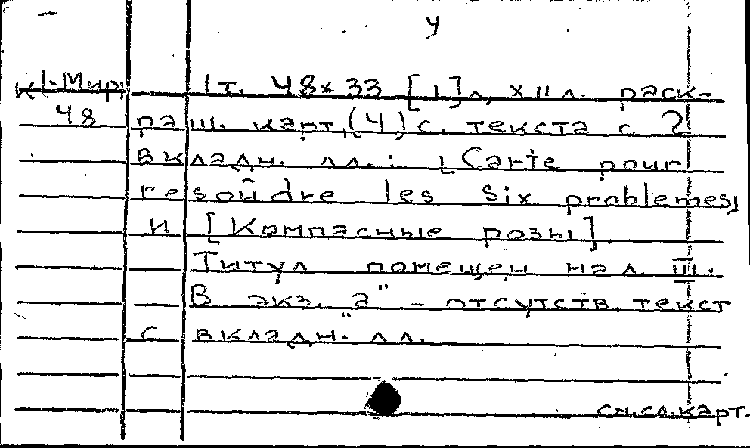 у
К1-Мир
48
1 т. 48×33 [1] л, XII л. раск-
раш. карт, (4) с. текста с 2
вкладн. лл.: [Carte pour
resoûdre les six problemes]
и [Компасные розы].
Титул помещен на л. III.
В экз. "а" - отсутств. текст
с вкладн. лл.
см.сл.карт.